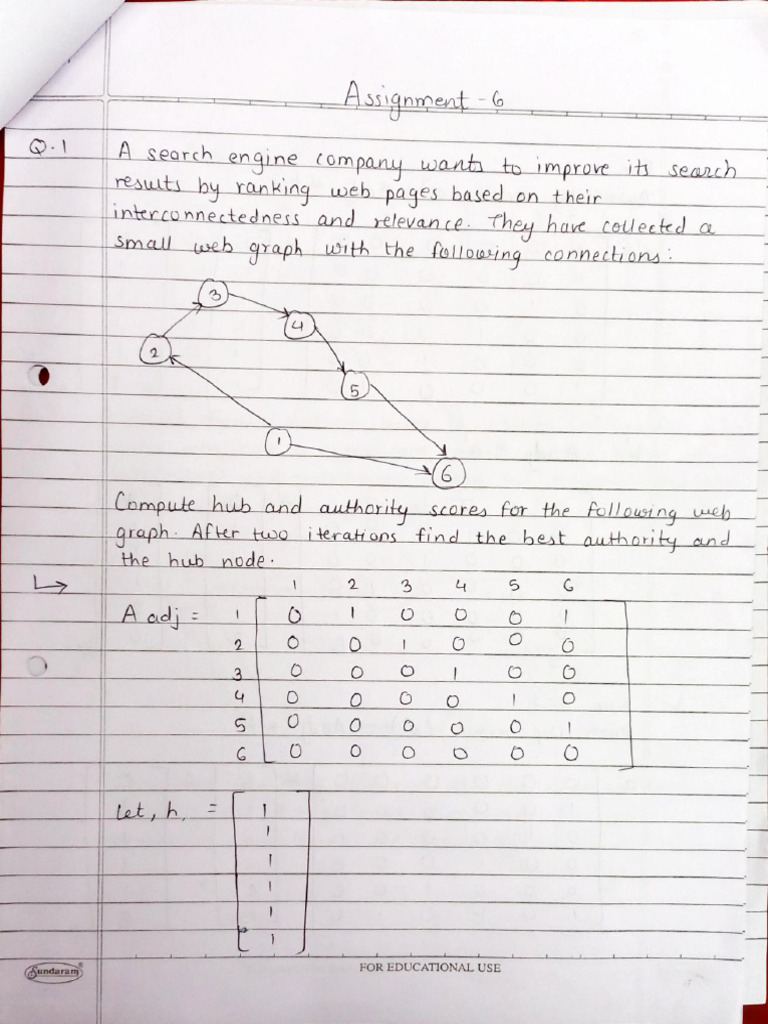 Assignment - 6
Q.1 A search engine company wants to improve its search
results by ranking web pages based on their
interconnectedness and relevance. They have collected a
small web graph with the following connections:
3
4
2
5
1
6
Compute hub and authority scores for the following web
graph. After two iterations find the best authority and
the hub node.
1 2 3 4 5 6
A adj = 1 0 1 0 0 0 1
2 0 0 1 0 0 0
3 0 0 0 1 0 0
4 0 0 0 0 1 0
5 0 0 0 0 0 1
6 0 0 0 0 0 0
Let, h, = 1
1
1
1
1
1
Sundaram®
FOR EDUCATIONAL USE